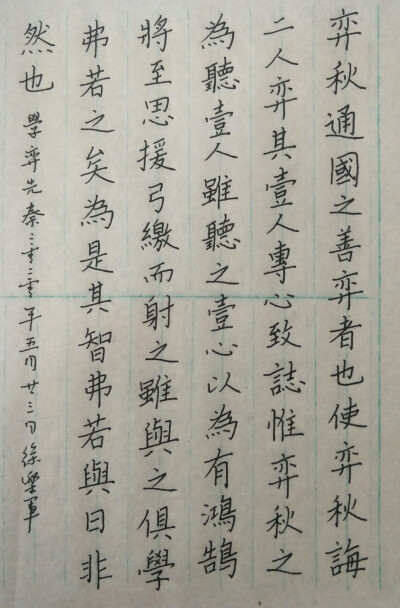 弈秋通國之善弈者也使弈秋誨
二人弈其壹人專心致誌惟弈秋之
為聽壹人雖聽之壹心以為有鴻鵠
將至思援弓繳而射之雖與之俱學
弗若之矣為是其智弗若與曰非
然也 學弈先秦二零二零年五月廿三日徐軍